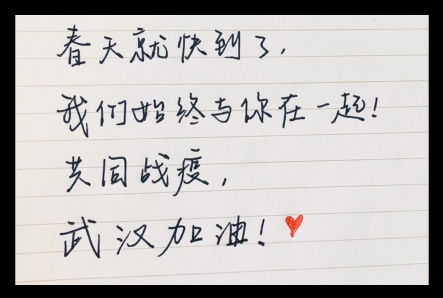 春天就快到了,
我们始终与你在一起!
共同战疫,
武汉加油!